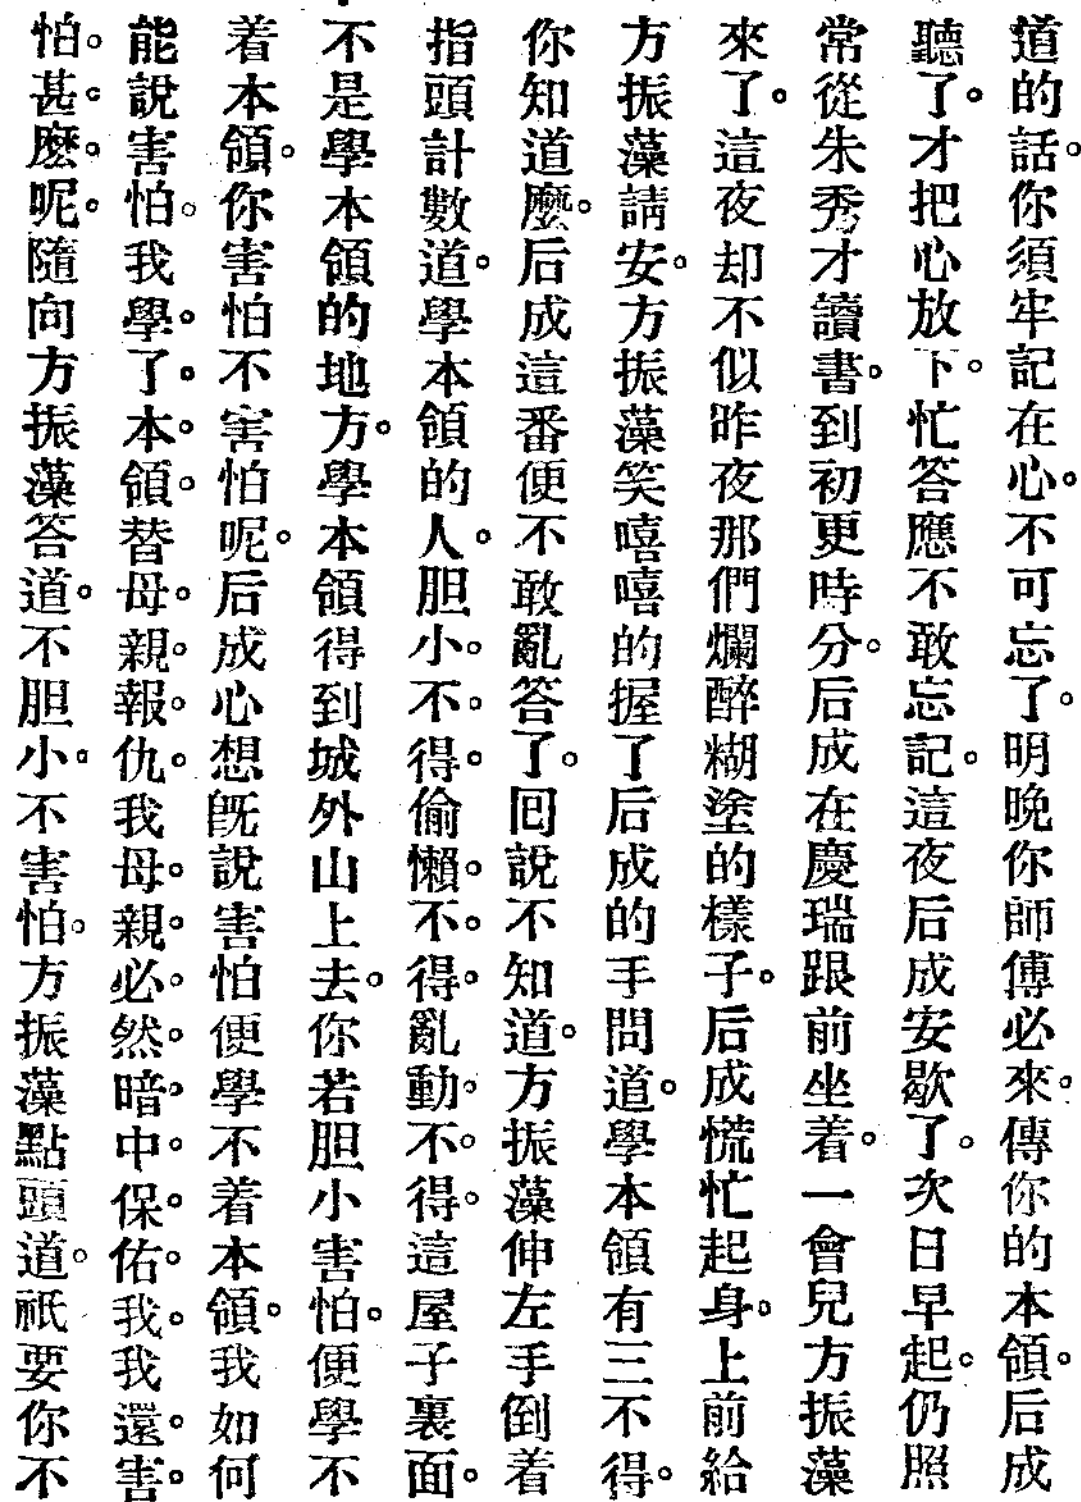 道的話。你須牢記在心。不可忘了。明晚你師傅必來。傳你的本領。后成
聽了。才把心放下。忙答應不敢忘記。這夜后成安歇了。次日早起。仍照
常從朱秀才讀書。到初更時分。后成在慶瑞跟前坐着。一會兒方振藻
來了。這夜却不似昨夜那們爛醉糊塗的樣子。后成慌忙起身。上前給
方振藻請安。方振藻笑嘻嘻的握了后成的手問道。學本領有三不得。
你知道麼。后成這番便不敢亂答了。回說不知道。方振藻伸左手倒着
指頭計數道。學本領的人。胆小。不。得。偷懶。不。得。亂動。不。得。這屋子裏面。
不是學本領的地方。學本領得到城外山上去。你若胆小害怕。便學不
着本領。你害怕不害怕呢。后成心想旣說害怕便學不着本領。我如何
能說害怕。我學。了。本。領。替母。親。報。仇。我母。親。必。然。暗。中。保。佑。我。我還。害。
怕。甚。麽。呢。隨向方振藻答道。不胆小。不害怕。方振藻點頭道。祇要你不